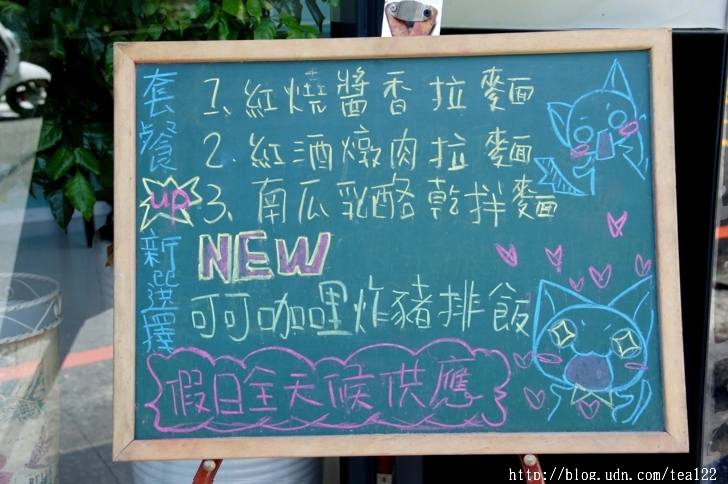 套餐
up
新選擇
1、紅燒醬香拉麵
2、紅酒燉肉拉麵
3、南瓜乳酪乾拌麵
NEW
可可咖哩炸豬排飯
假日全天候供應
http://blog.udn.com/tea122